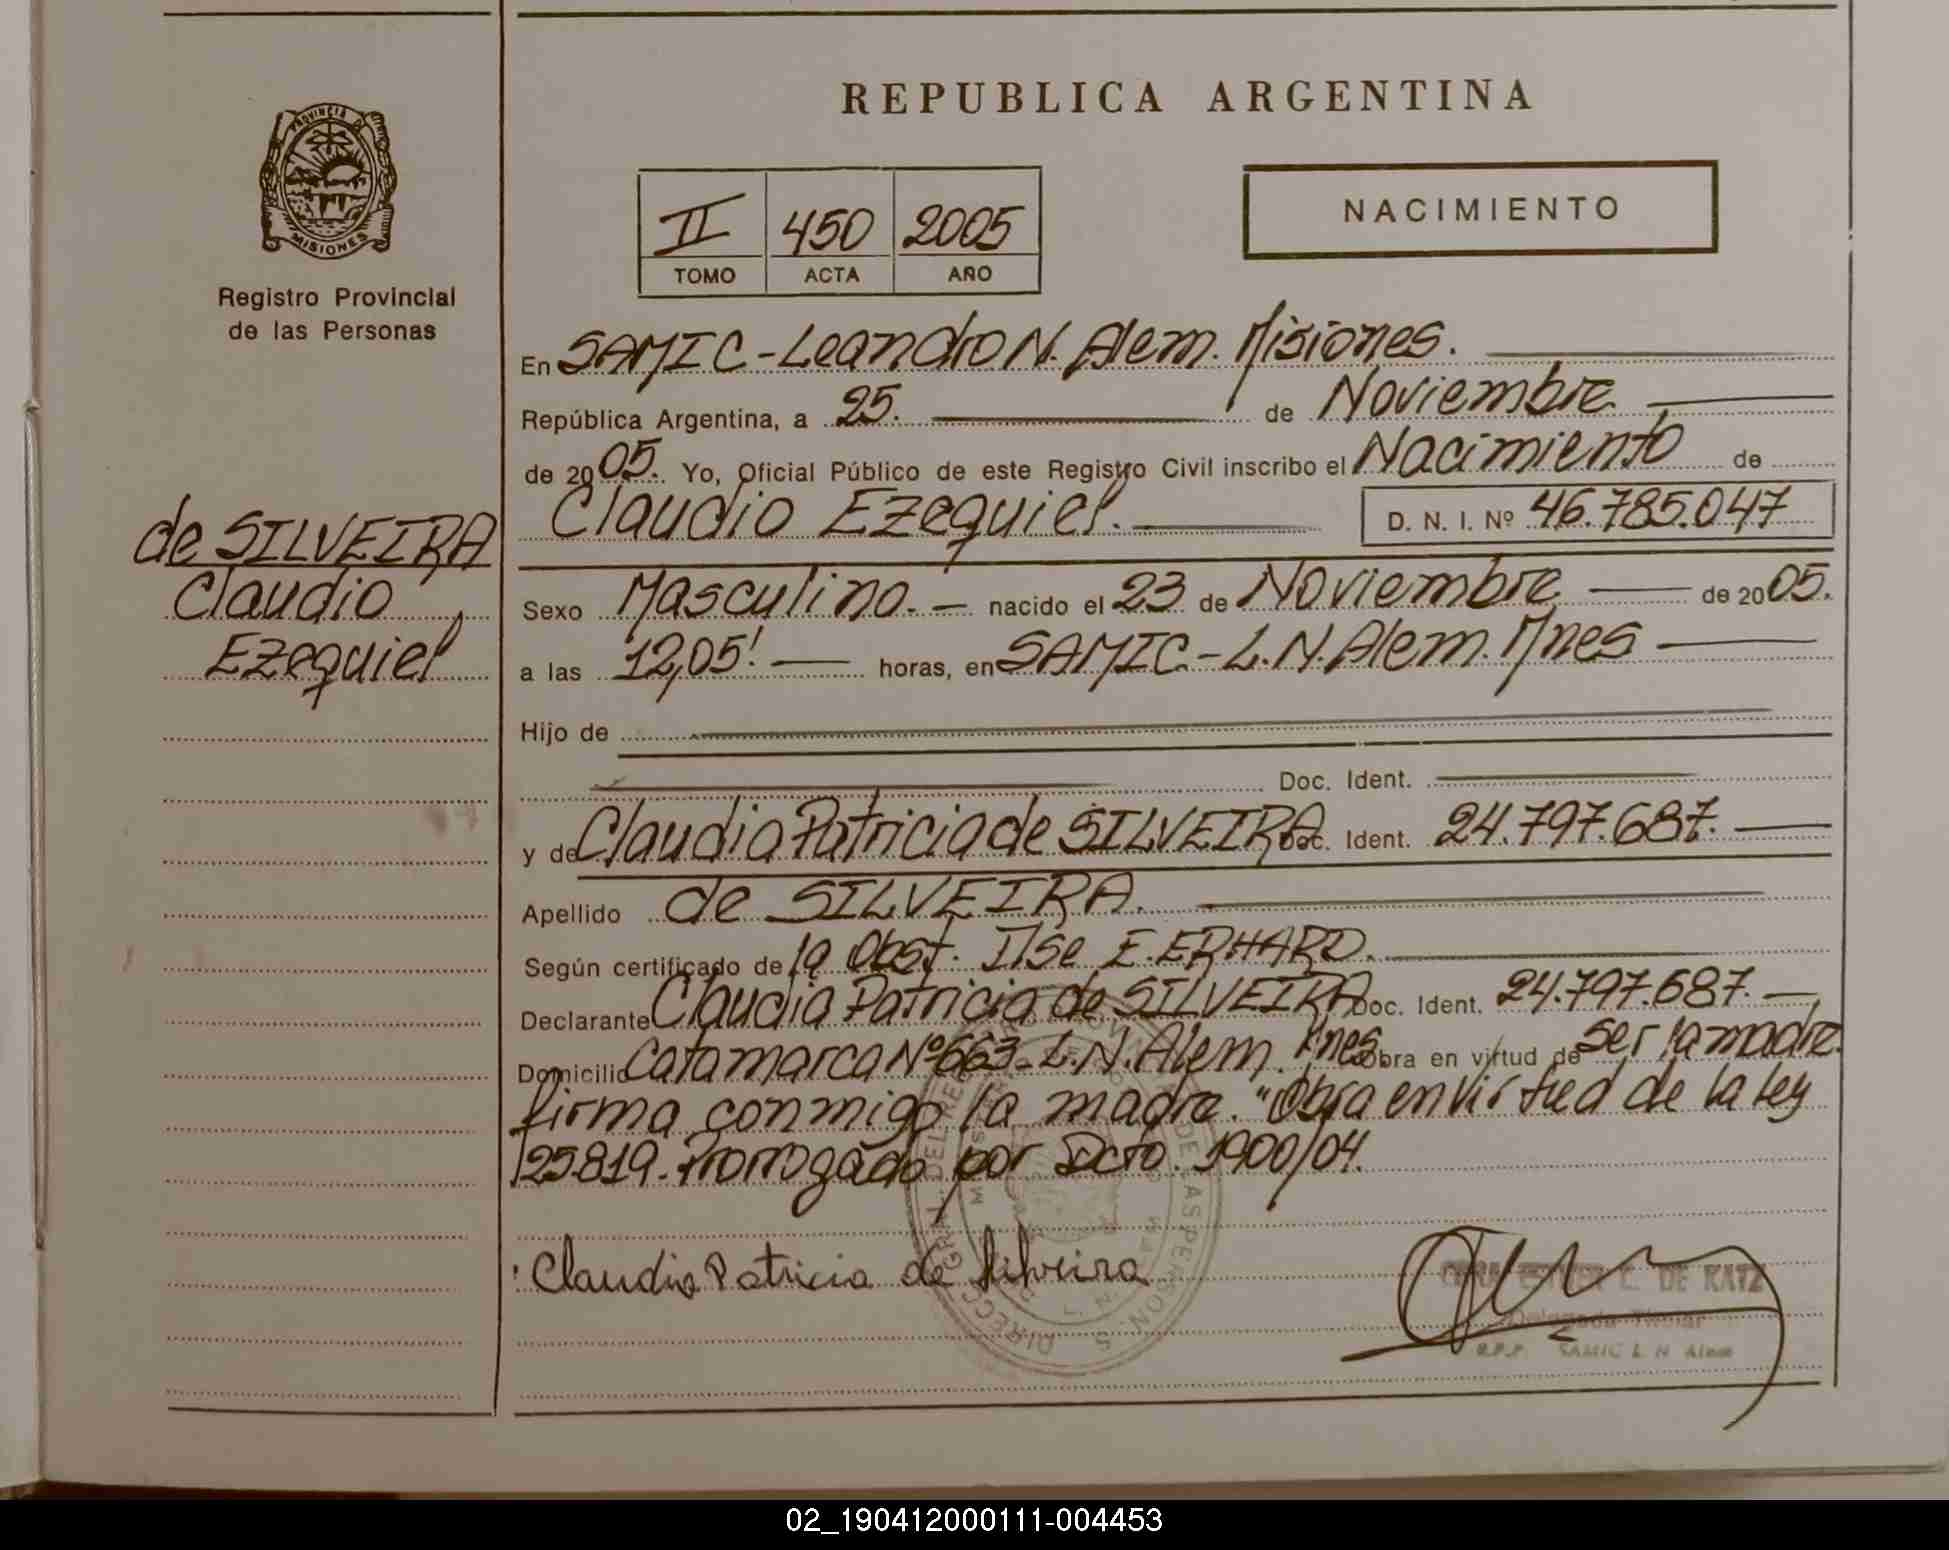 REPUBLICA ARGENTINA
PROVINCIA DE
MISIONES
Registro Provincial
de las Personas
II 450 2005
TOMO ACTA AÑO
NACIMIENTO
de SILVEIRA
Claudio
Ezequiel
En SAMIC - Leandro N. Alem. Misiones.
República Argentina, a 25. de Noviembre
de 2005. Yo, Oficial Público de este Registro Civil inscribo el Nacimiento de
Claudio Ezequiel. D. N. I. Nº 46.785.047
Sexo Masculino. - nacido el 23 de Noviembre de 2005.
a las 12,05! horas, en SAMIC - L.N. Alem. Mnes
Hijo de
Doc. Ident.
y de Claudia Patricia de SILVEIRA Doc. Ident. 24.797.687.
Apellido de SILVEIRA.
Según certificado de la Obst. Ilse E. ERHARD.
Declarante Claudia Patricia de SILVEIRA Doc. Ident. 24.797.687.
Domicilio Catamarca Nº 663 - L.N. Alem. Mnes Obra en virtud de ser la madre.
firma conmigo la madre. "Obra en virtud de la ley
25819. Prorrogado por Dcto. 1900/04.
Claudia Patricia de Silveira
DE KATZ
Delegada Titular
R.P.P. SAMIC L N Alem
02_190412000111-004453